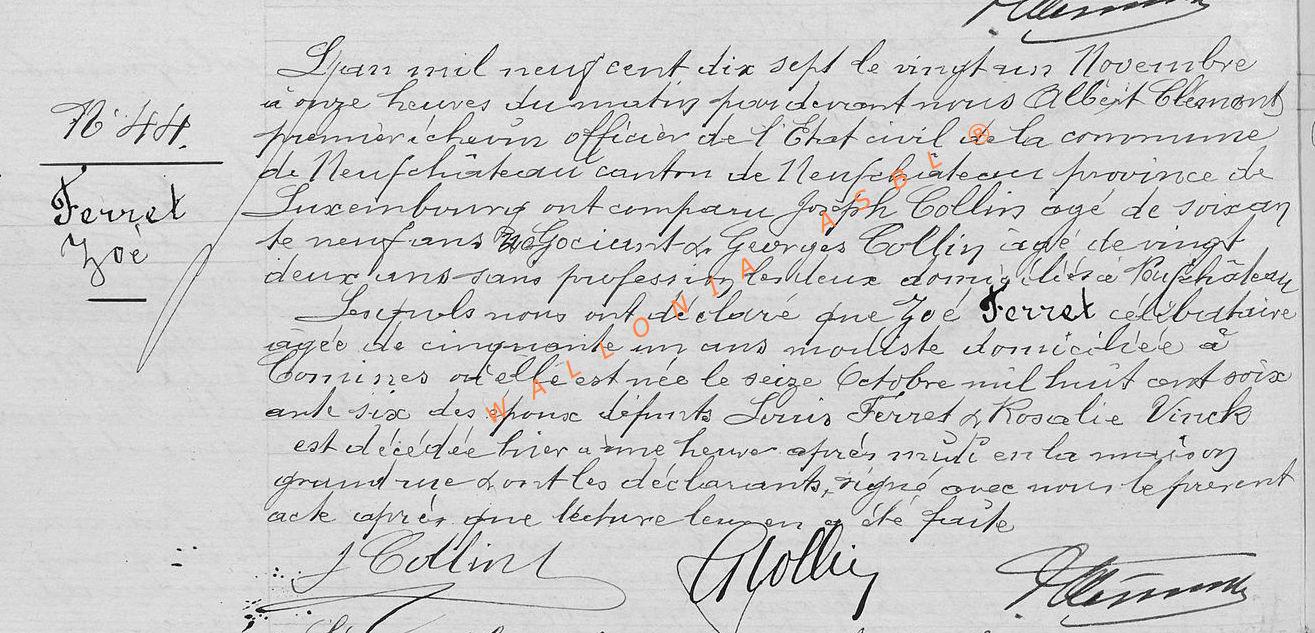 N° 44.
Ferret
Zoé
L'an mil neuf cent dix sept le vingt un Novembre
à onze heures du matin par devant nous Albert Clément
premier échevin officier de l'Etat civil de la commune
de Neufchâteau canton de Neufchâteau province de
Luxembourg ont comparu Joseph Collin agé de soixan
te neuf ans Négociant & Georges Collin âgé de vingt
deux ans sans profession les deux domiciliés à Neufchâteau
Lesquels nous ont déclaré que Zoé Ferret célibataire
âgée de cinquante un ans modiste domiciliée à
Comines où elle est née le seize Octobre mil huit cent soix
ante six des époux défunts Louis Ferret & Rosalie Vinck
est décédée hier à une heure après midi en la maison
grand rue & ont les déclarants, signé avec nous le présent
acte après que lecture leur en a été faite
J Collin
G Collin
A Clément
WALLONIA ASBL ®